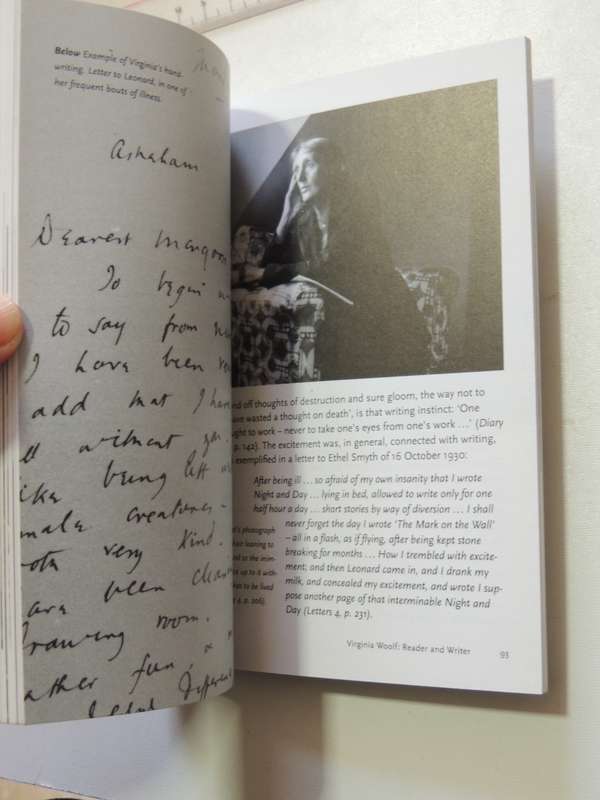 Below Example of Virginia's hand-
writing. Letter to Leonard, in one of
her frequent bouts of illness.
Asheham
Dearest Mongoose
To begin
to say from
I have been
add that I have
without you.
being left
male creatures -
very kind.
are been
drawing room.
fun,
nd off thoughts of destruction and sure gloom, the way not to
wasted a thought on death', is that writing instinct: 'One
ught to work – never to take one's eyes from one's work …' (Diary
p. 142). The excitement was, in general, connected with writing,
exemplified in a letter to Ethel Smyth of 16 October 1930:
After being ill … so afraid of my own insanity that I wrote
Night and Day … lying in bed, allowed to write only for one
half hour a day … short stories by way of diversion … I shall
never forget the day I wrote 'The Mark on the Wall'
– all in a flash, as if flying, after being kept stone
breaking for months … How I trembled with excite-
ment; and then Leonard came in, and I drank my
milk, and concealed my excitement, and wrote I sup-
pose another page of that interminable Night and
Day (Letters 4, p. 231).
's photograph
learning to
nd so the inim-
up to it with-
as to be lived
4, p. 206).
Virginia Woolf: Reader and Writer
93